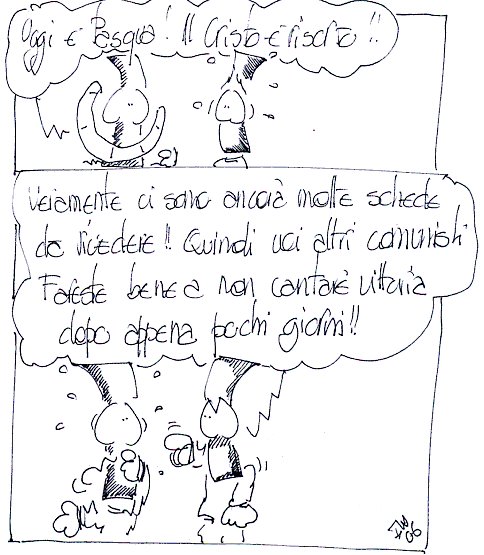 Oggi è Pasqua! Il Cristo è risorto!!
Veramente ci sono ancora molte schede
da rivedere!! Quindi voi altri comunisti
Fareste bene a non cantare vittoria
dopo appena pochi giorni!!
06